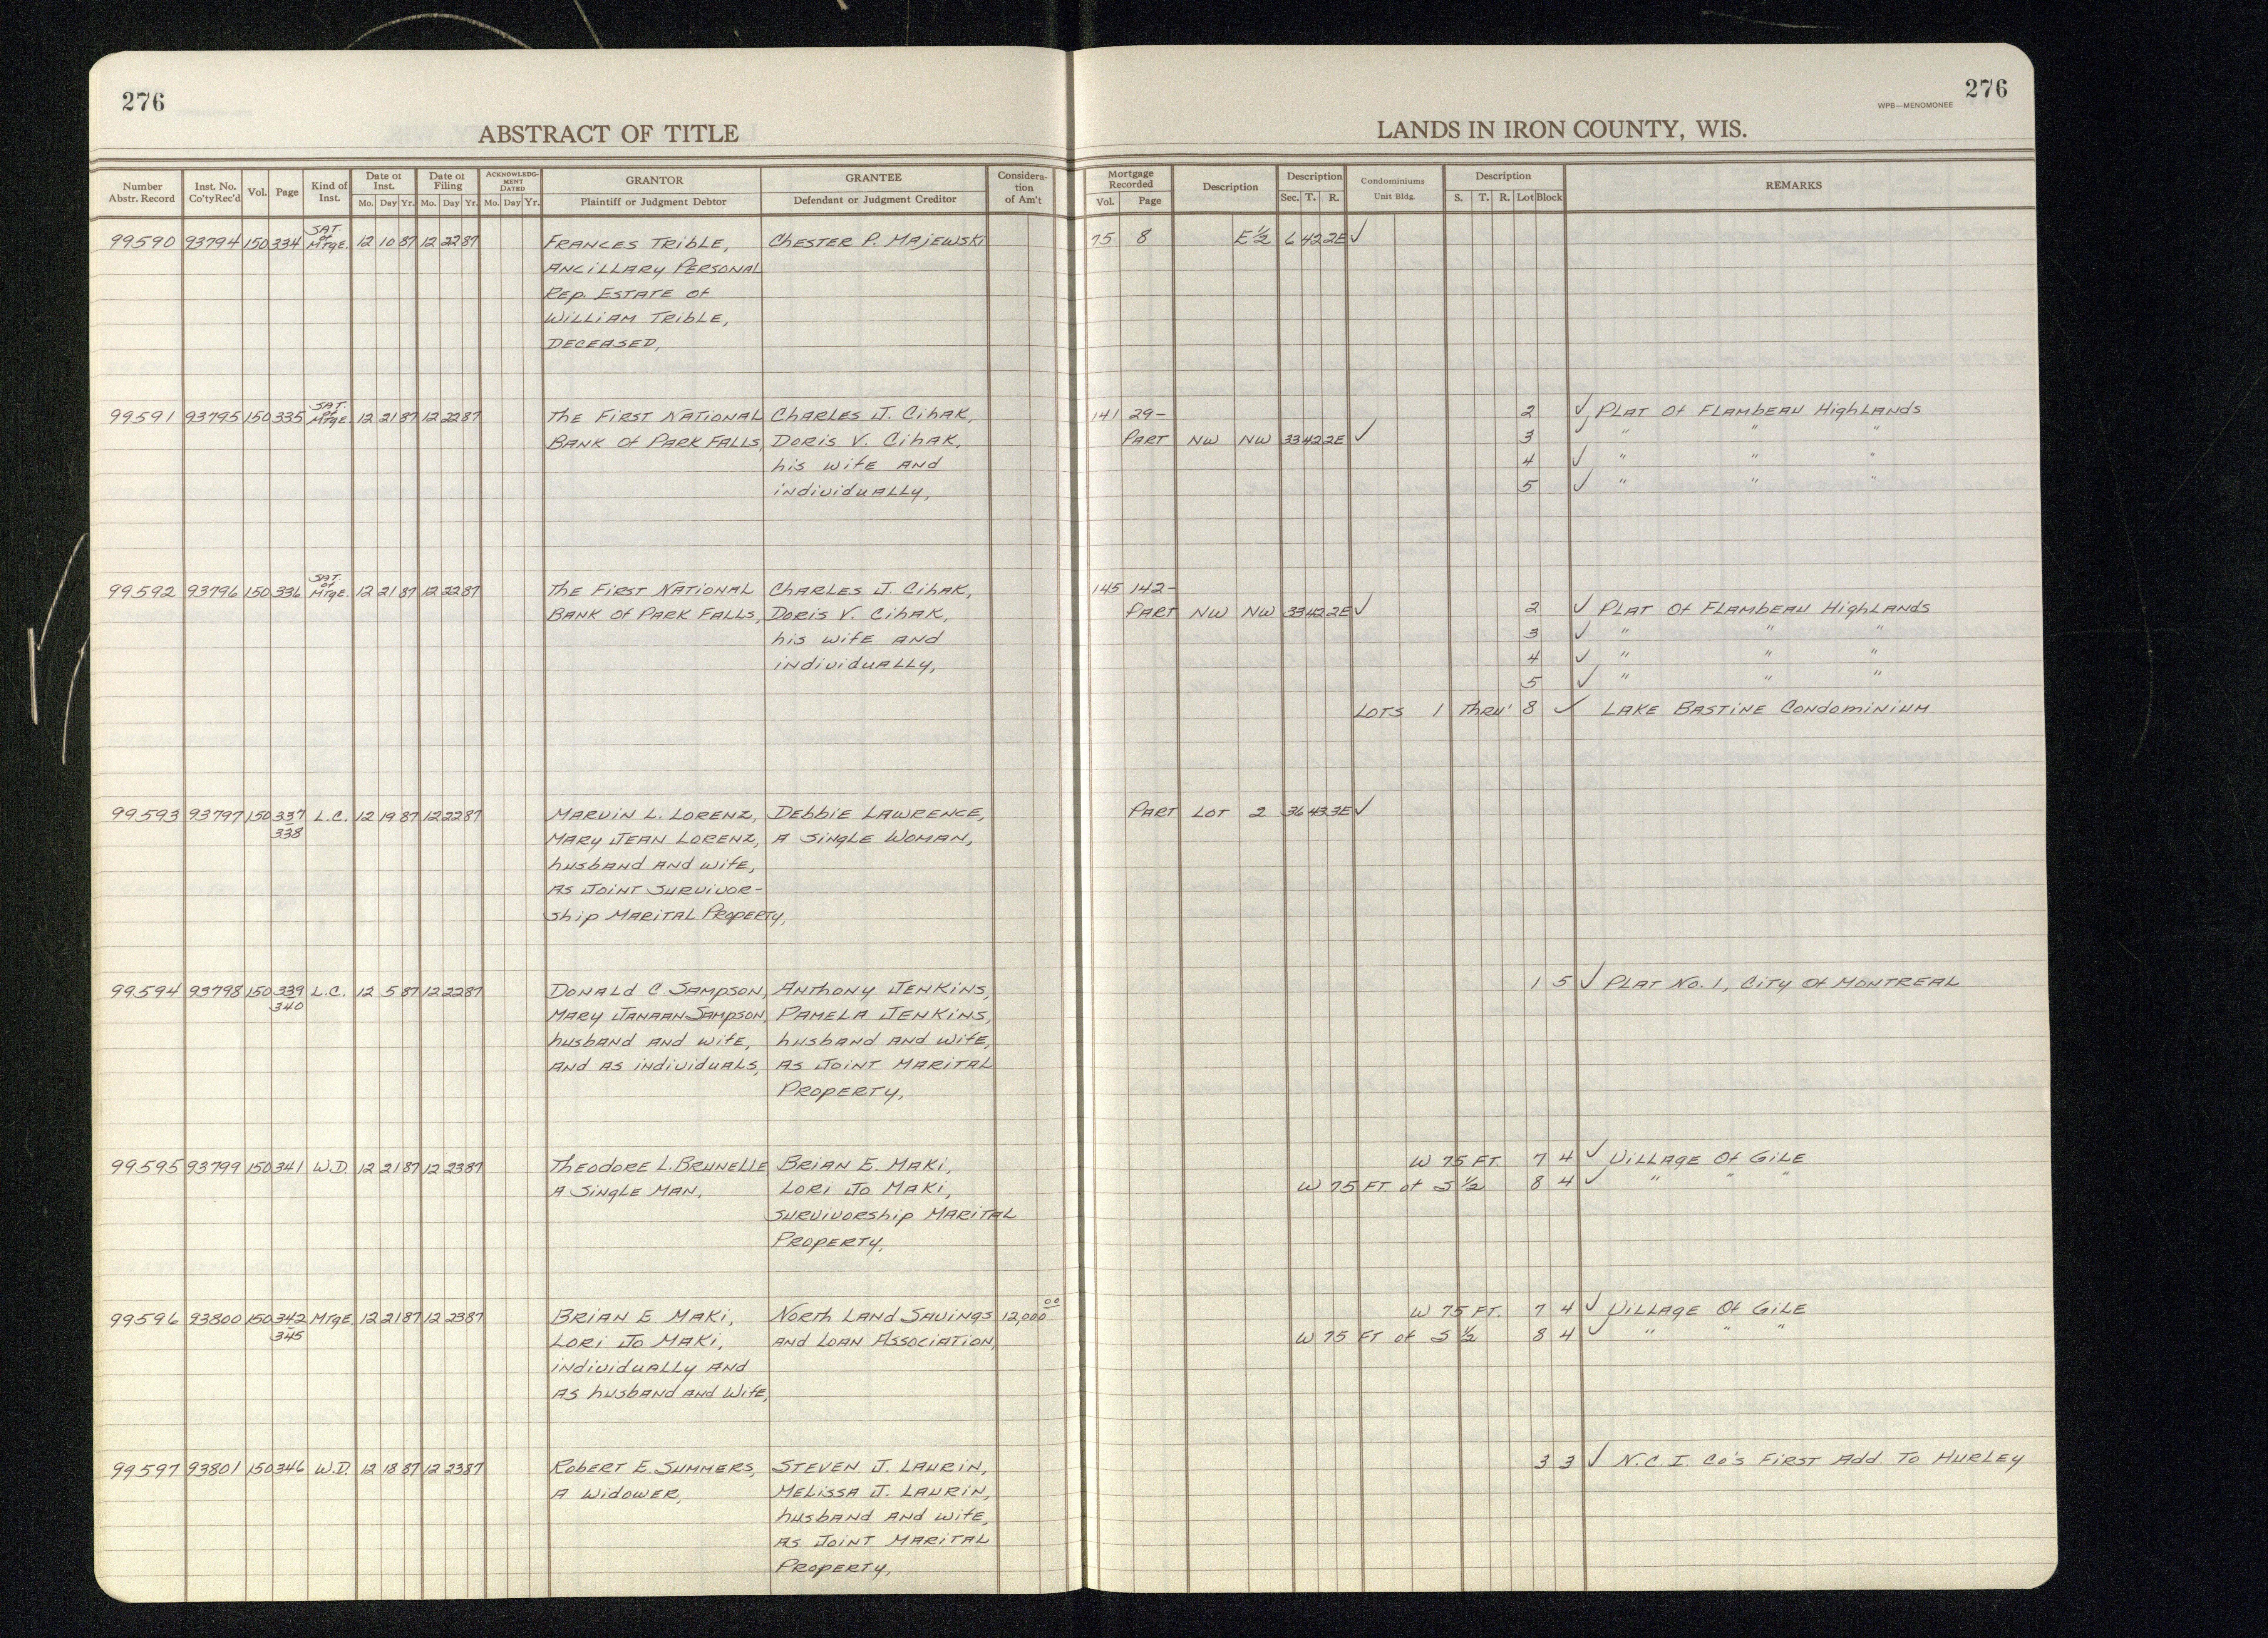 276
276
WPB—MENOMONEE
ABSTRACT OF TITLE
LANDS IN IRON COUNTY, WIS.
Number Abstr. Record Inst. No. Co'ty Rec'd Vol. Page Kind of Inst. Date of Inst. Mo. Day Yr. Date of Filing Mo. Day Yr. ACKNOWLEDGMENT DATED Mo. Day Yr. GRANTOR Plaintiff or Judgment Debtor GRANTEE Defendant or Judgment Creditor Consideration of Am't Mortgage Recorded Vol. Page Description Description Sec. T. R. Condominiums Unit Bldg. Description S. T. R. Lot Block REMARKS
99590 93794 150 334 SAT. of MTGE. 12 10 87 12 22 87 FRANCES TRIBLE, CHESTER P. MAJEWSKI 75 8 E½ 6 42 2E ✓
ANCILLARY PERSONAL
REP. ESTATE OF
WILLIAM TRIBLE,
DECEASED,
99591 93795 150 335 SAT. of MTGE. 12 21 87 12 22 87 THE FIRST NATIONAL CHARLES J. CIHAK, 141 29- 2 ✓ PLAT OF FLAMBEAU HIGHLANDS
BANK OF PARK FALLS, DORIS V. CIHAK, PART NW NW 33 42 2E ✓ 3 ✓ " " "
his wife AND 4 ✓ " " "
individually, 5 ✓ " " "
99592 93796 150 336 SAT. of MTGE. 12 21 87 12 22 87 THE FIRST NATIONAL CHARLES J. CIHAK, 145 142-
BANK OF PARK FALLS, DORIS V. CIHAK, PART NW NW 33 42 2E ✓ 2 ✓ PLAT OF FLAMBEAU HIGHLANDS
his wife AND 3 ✓ " " "
individually, 4 ✓ " " "
5 ✓ " " "
LOTS 1 THRU' 8 ✓ LAKE BASTINE CONDOMINIUM
99593 93797 150 337 L.C. 12 19 87 12 22 87 MARVIN L. LORENZ, DEBBIE LAWRENCE, PART LOT 2 36 43 3E ✓
338 MARY JEAN LORENZ, A SINGLE WOMAN,
husband and wife,
AS JOINT SURVIVOR-
ship MARITAL PROPERTY,
99594 93798 150 339 L.C. 12 5 87 12 22 87 DONALD C. SAMPSON, ANTHONY JENKINS, 1 5 ✓ PLAT NO. 1, CITY OF MONTREAL
340 MARY JANAAN SAMPSON, PAMELA JENKINS,
husband AND wife, husband AND wife,
AND AS individuals, AS JOINT MARITAL
PROPERTY,
99595 93799 150 341 W.D. 12 21 87 12 23 87 THEODORE L. BRUNELLE, BRIAN E. MAKI, W 75 FT. 7 4 ✓ VILLAGE OF GILE
A SINGLE MAN, LORI JO MAKI, W 75 FT. of S ½ 8 4 ✓ " " "
SURVIVORSHIP MARITAL
PROPERTY,
99596 93800 150 342 MTGE. 12 21 87 12 23 87 BRIAN E. MAKI, NORTH LAND SAVINGS 12,000 00 W 75 FT. 7 4 ✓ VILLAGE OF GILE
345 LORI JO MAKI, AND LOAN ASSOCIATION, W 75 FT of S ½ 8 4 ✓ " " "
individually AND
AS husband AND wife,
99597 93801 150 346 W.D. 12 18 87 12 23 87 ROBERT E. SUMMERS, STEVEN J. LAURIN, 3 3 ✓ N.C.I. CO'S FIRST ADD. TO HURLEY
A WIDOWER, MELISSA J. LAURIN,
husband AND wife,
AS JOINT MARITAL
PROPERTY,